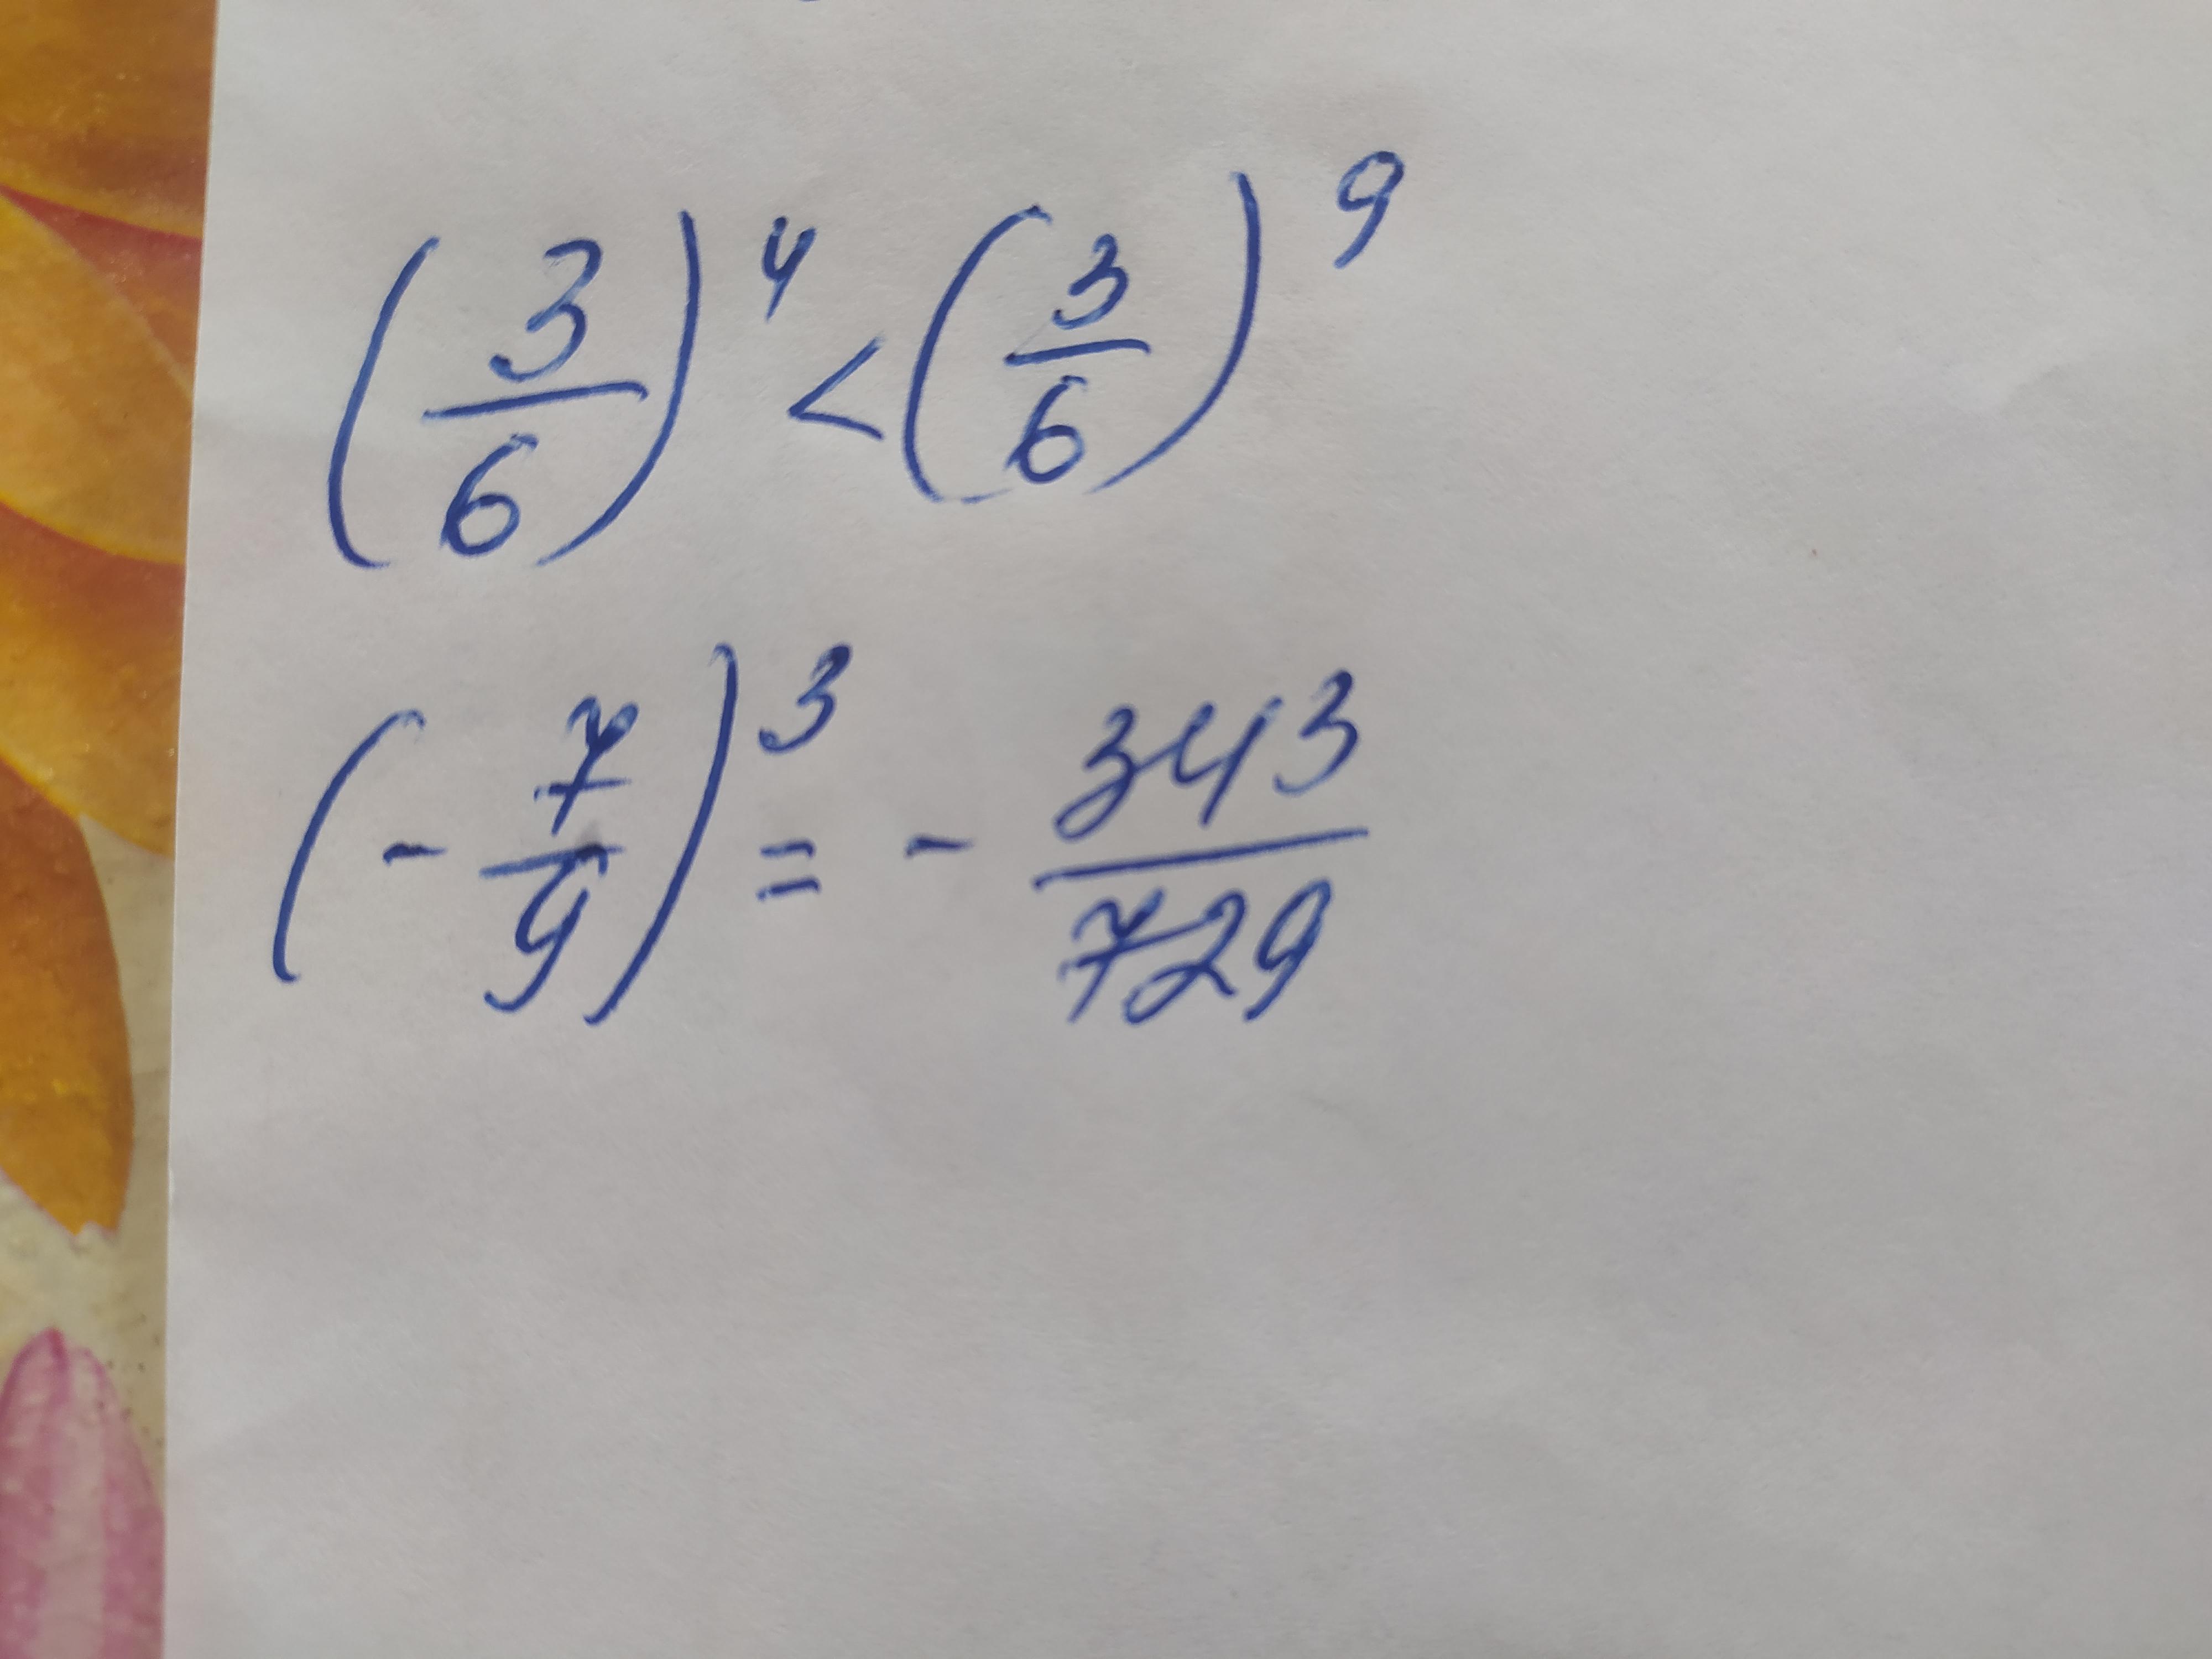 (3/6)⁴ < (3/6)⁹
(- 7/9)³ = - 343/729